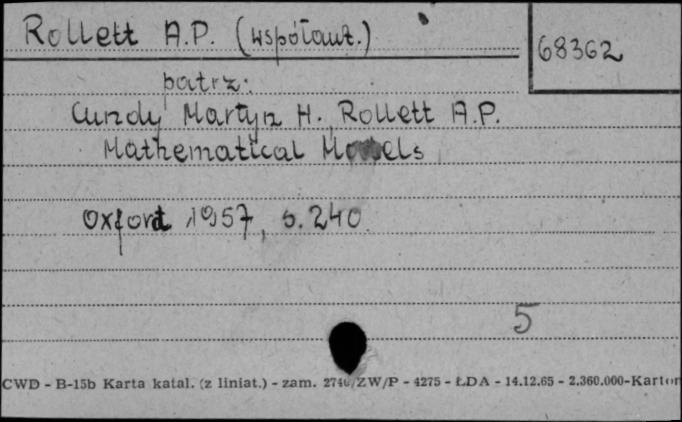 Rollett A.P. (współaut.)
68362
patrz:
Cundy Martyn H., Rollett A.P.
Mathematical Models
Oxford 1957, s. 240
5
CWD - B-15b Karta katal. (z liniat.) - zam. 2740/ZW/P - 4275 - ŁDA - 14.12.65 - 2.360.000-Karton